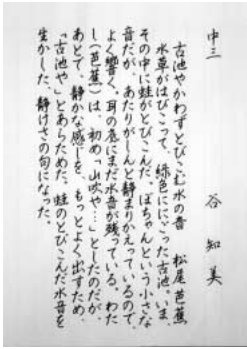 中三　谷　知美
古池やかわずとびこむ水の音　松尾芭蕉
水草がはびこって、緑色ににごった古池。いま、
その中に蛙がとびこんだ。ぽちゃんという小さな
音だが、あたりがしんと静まりかえっているので、
よく響く。耳の底にまだ水音が残っている。わた
し（芭蕉）は、初め「山吹や…」としたのだが、
あとで、静かな感じを、もっとよく出すため、
「古池や」とあらためた。蛙のとびこんだ水音を
生かした、静けさの句になった。